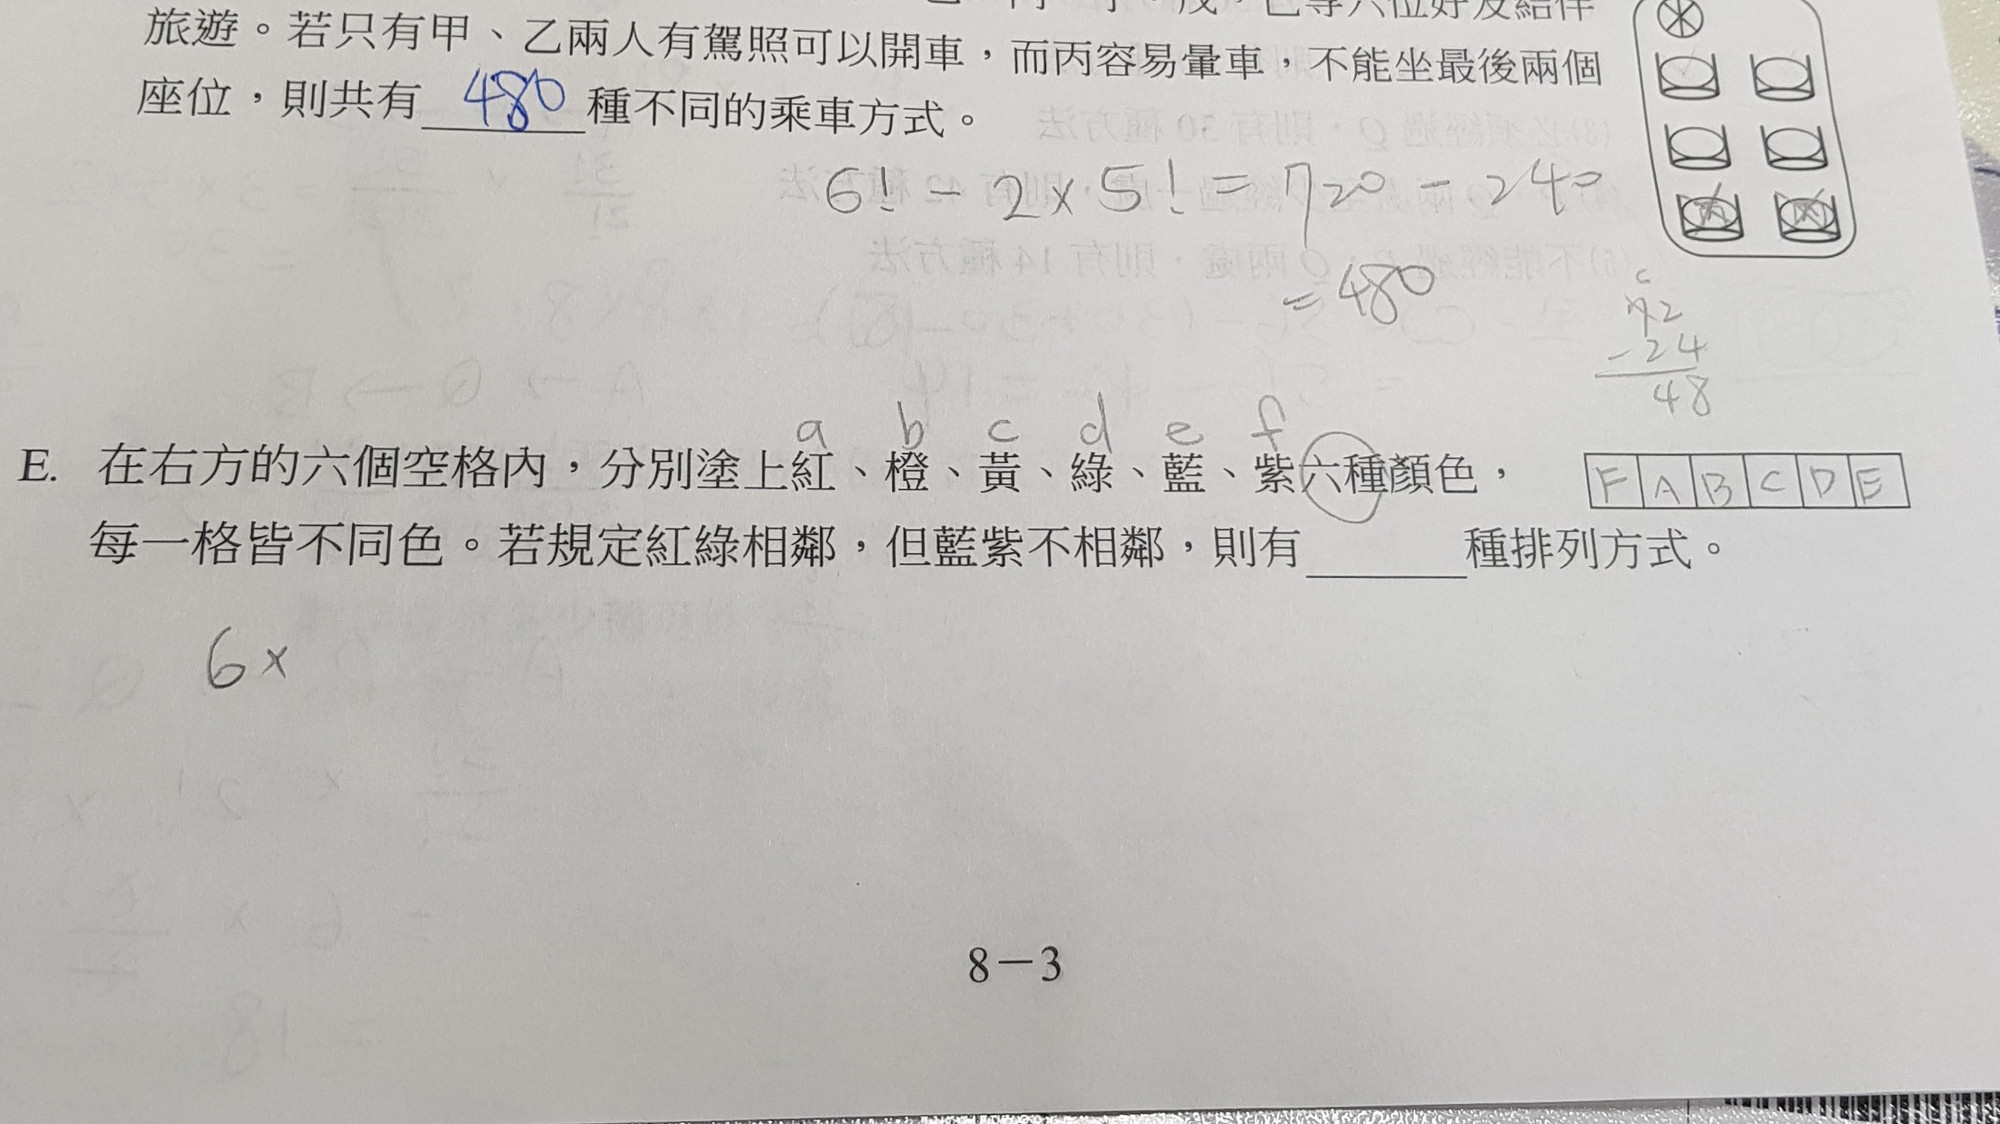 旅遊。若只有甲、乙兩人有駕照可以開車，而丙容易暈車，不能坐最後兩個
座位，則共有 480 種不同的乘車方式。
6! - 2 × 5! = 720 - 240
= 480
72
- 24
48
a b c d e f
E. 在右方的六個空格內，分別塗上紅、橙、黃、綠、藍、紫六種顏色，
F A B C D E
每一格皆不同色。若規定紅綠相鄰，但藍紫不相鄰，則有______種排列方式。
6 ×
8－3